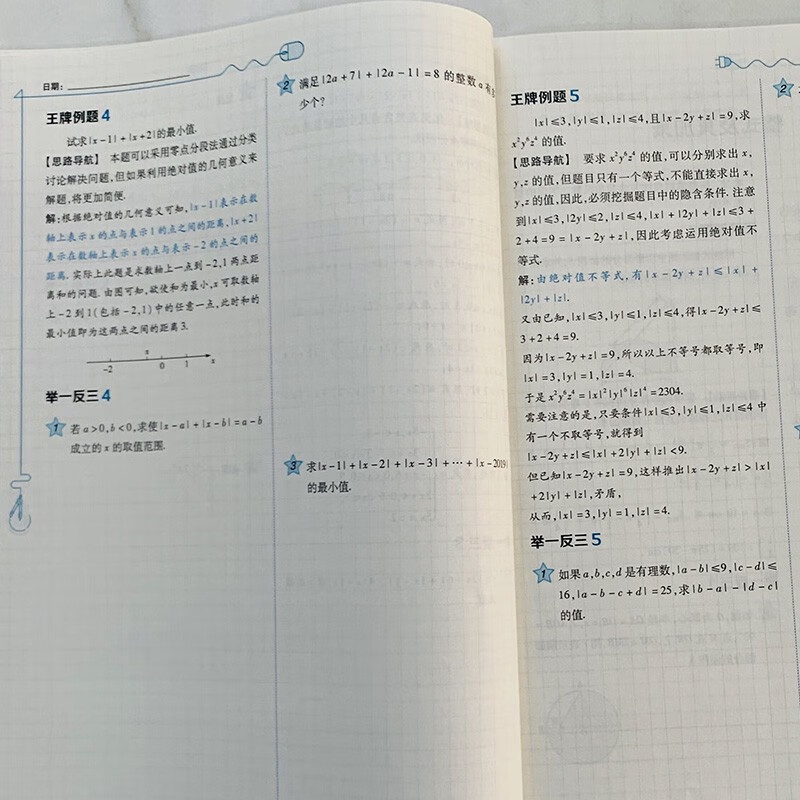 日期:
王牌例题4
试求|x-1|+|x+2|的最小值.
【思路导航】 本题可以采用零点分段法通过分类
讨论解决问题,但如果利用绝对值的几何意义来
解题,将更加简便.
解:根据绝对值的几何意义可知,|x-1|表示在数
轴上表示x的点与表示1的点之间的距离,|x+2|
表示在数轴上表示x的点与表示-2的点之间的
距离.实际上此题是求数轴上一点到-2,1两点距
离和的问题.由图可知,欲使和为最小,x可取数轴
上-2到1(包括-2,1)中的任意一点,此时和的
最小值即为这两点之间的距离3.
x
-2 0 1 x
举一反三4
1 若a>0,b<0,求使|x-a|+|x-b|=a-b
成立的x的取值范围.
2 满足|2a+7|+|2a-1|=8的整数a有
少个?
3 求|x-1|+|x-2|+|x-3|+…+|x-2019|
的最小值.
王牌例题5
|x|≤3,|y|≤1,|z|≤4,且|x-2y+z|=9,求
x²y⁶z⁴的值.
【思路导航】 要求x²y⁶z⁴的值,可以分别求出x,
y,z的值,但题目只有一个等式,不能直接求出x,
y,z的值,因此,必须挖掘题目中的隐含条件.注意
到|x|≤3,|2y|≤2,|z|≤4,|x|+|2y|+|z|≤3+
2+4=9=|x-2y+z|,因此考虑运用绝对值不
等式.
解:由绝对值不等式,有|x-2y+z|≤|x|+
|2y|+|z|.
又由已知,|x|≤3,|y|≤1,|z|≤4,得|x-2y+z|≤
3+2+4=9.
因为|x-2y+z|=9,所以以上不等号都取等号,即
|x|=3,|y|=1,|z|=4.
于是x²y⁶z⁴=|x|²|y|⁶|z|⁴=2304.
需要注意的是,只要条件|x|≤3,|y|≤1,|z|≤4中
有一个不取等号,就得到
|x-2y+z|≤|x|+2|y|+|z|<9.
但已知|x-2y+z|=9,这样推出|x-2y+z|>|x|
+2|y|+|z|,矛盾,
从而,|x|=3,|y|=1,|z|=4.
举一反三5
1 如果a,b,c,d是有理数,|a-b|≤9,|c-d|≤
16,|a-b-c+d|=25,求|b-a|-|d-c|
的值.
2